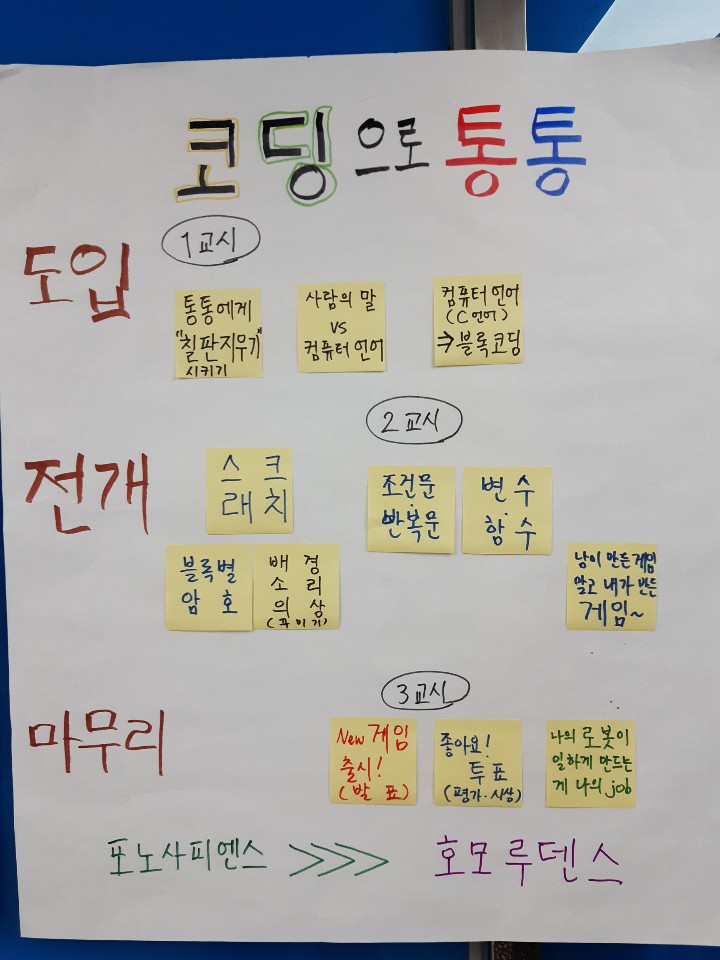 코딩으로 통통
도입
1교시
통통에게
"칠판지우기"
시키기
사람의 말
VS
컴퓨터 언어
컴퓨터 언어
(C언어)
⇒블록코딩
전개
스크
래치
블록별
암호
배경
소리
의상
(꾸미기)
2교시
조건문
반복문
변수
함수
남이 만든 게임
말고 내가 만든
게임~
마무리
3교시
New 게임
출시!
(발표)
좋아요!
투표
(평가·시상)
나의 로봇이
일하게 만드는
게 나의 job
포노사피엔스 >>> 호모루덴스